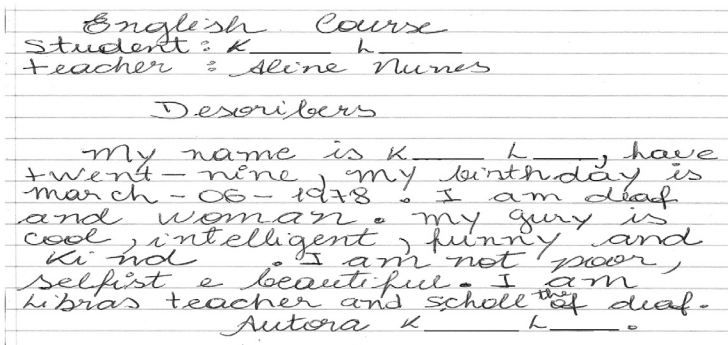 English Course
Student: K______ L______
teacher : Aline Nunes
Describers
my name is K_____ L____, have
twent-nine, my birthday is
march-06-1978. I am deaf
and woman. my gury is
cool, intelligent, funny and
kind. I am not poor,
selfist e beautiful. I am
Libras teacher and scholl the of deaf.
Autora K______ L____.